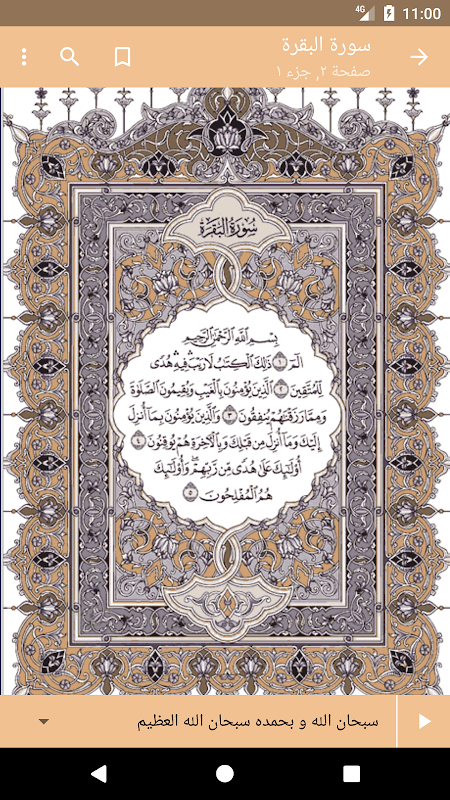 4G 11:00
سورة البقرة
صفحة ٢, جزء ١
سُورَةُ البَقَرَةِ
بِسْمِ اللَّهِ الرَّحْمَٰنِ الرَّحِيمِ
الٓمٓ ١ ذَٰلِكَ الْكِتَٰبُ لَا رَيْبَ ۛ فِيهِ ۛ هُدًى
لِّلْمُتَّقِينَ ٢ الَّذِينَ يُؤْمِنُونَ بِالْغَيْبِ وَيُقِيمُونَ الصَّلَوٰةَ
وَمِمَّا رَزَقْنَٰهُمْ يُنفِقُونَ ٣ وَالَّذِينَ يُؤْمِنُونَ بِمَا أُنزِلَ
إِلَيْكَ وَمَا أُنزِلَ مِن قَبْلِكَ وَبِالْآخِرَةِ هُمْ يُوقِنُونَ ٤
أُولَٰئِكَ عَلَىٰ هُدًى مِّن رَّبِّهِمْ ۖ وَأُولَٰئِكَ
هُمُ الْمُفْلِحُونَ ٥
سبحان الله و بحمده سبحان الله العظيم